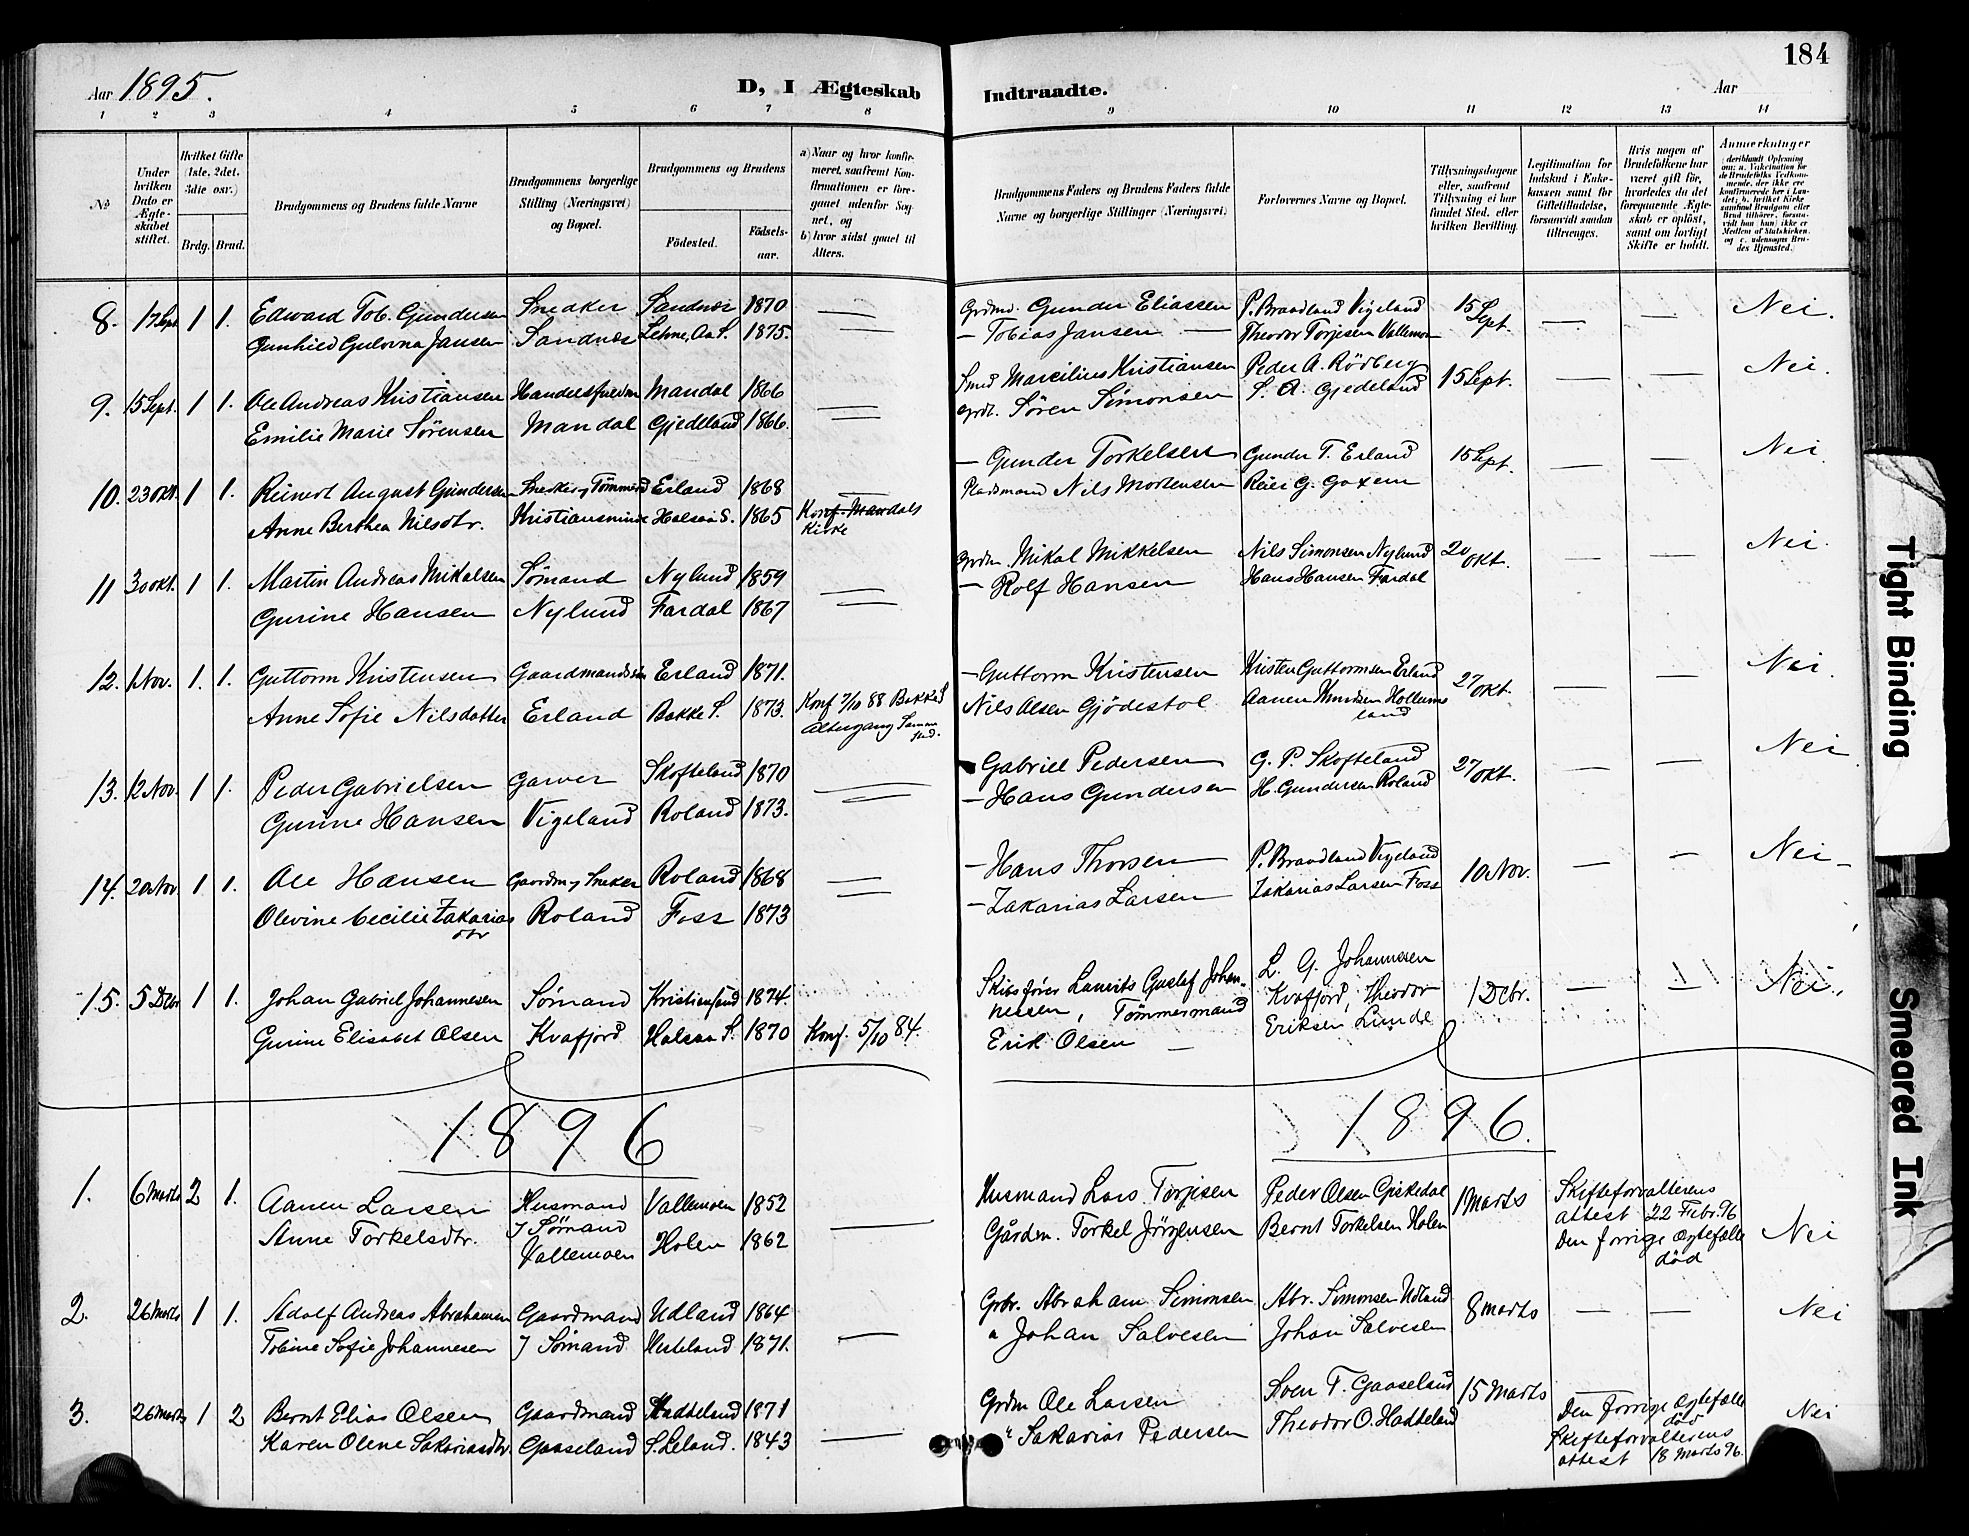 184
Aar 1895.
D, I Ægteskab
Indtraadte.
Aar
1 2 3 4 5 6 7 8 9 10 11 12 13 14
No
Under hvilken Dato er Ægteskabet stiftet.
Hvilket Gifte (1ste, 2det, 3die osv.)
Brdg. Brud.
Brudgommens og Brudens fulde Navne
Brudgommens borgerlige Stilling (Næringsvei) og Bopæl.
Brudgommens og Brudens
Födested.
Födsels-aar.
a) Naar og hvor konfirmeret, saafremt Konfirmationen er foregaaet udenfor Sognet, og
b) hvor sidst gaaet til Alters.
Brudgommens Faders og Brudens Faders fulde Navne og borgerlige Stillinger (Næringsvei)
Forlovernes Navne og Bopæl.
Tillysningsdagene eller, saafremt Tillysning ei har fundet Sted, efter hvilken Bevilling.
Legitimation for Indskud i Enkekassen samt for Giftetilladelse, forsaavidt saadan tiltrænges.
Hvis nogen af Brudefolkene har været gift för, hvorledes da det foregaaende Ægteskab er oplöst, samt om lovligt Skifte er holdt.
Anmærkninger
8. 17 Sept 1 1. Edward Tob. Gundersen Snedker Sandnæs 1870 Grdmd. Gunder Eliassen P. Braadland Vigeland 15 Sept. — — Nei.
Gunhild Gulovna Jansen Sandnæs Lehne, Aa S. 1875. — Tobias Jansen — Theodor Torjesen Vallemoen
9. 15 Sept. 1 1. Ole Andreas Kristiansen Mandal 1866 Smed Marcilius Kristiansen Peder A. Rödberg 15 Sept. — — Nei.
Emilie Marie Sørensen Mandal Gjedeland 1866. Søren Simonsen S. A. Gjedeland
10. 23 Okt. 1 1. Reinert August Gundersen Snedker & Tømmerm Erland 1868 — Gunder Torkelsen Gunder T. Erland 15 Sept. — — Nei
Anne Berthea Nilsdtr. Kristiansminde Halsaa S. 1865 Konf. Mandals Kirke Pladsmand Nils Mortensen Reier G.
11 30 Okt. 1 1. Martin Andreas Mikalsen Sømand Nylund 1859 Grdm Mikal Mikkelsen Nils Simonsen Nylund 20 Okt. — — Nei.
Gurine Hansen Nylund Fardal 1867 — Rolf Hansen Hans Hansen Fardal
12. 1 Nov. 1. 1. Guttorm Kristensen Gaardmandssøn Erland 1871. — Guttorm Kristensen Kristen Guttormsen Erland 27 Okt. — — Nei.
Anne Sofie Nilsdatter Erland Bakke S. 1873. Konf 7/10 88 Bakke S Altergang Samme Sted. Nils Olsen Gjödestol Aanen Knudsen
13. 12 Nov. 1 1. Peder Gabrielsen Garver Skofteland 1870 — Gabriel Pedersen G. P. Skofteland 27 Okt. — — Nei
Gurine Hansen Vigeland Roland 1873. — Hans Gundersen H. Gundersen Roland
14. 20 Nov 1 1. Ole Hansen Gaardm & Snekker Roland 1868 — Hans Thorsen P. Braadland Vigeland 10 Nov. — — Nei
Olevine Cecilie Zakariasdtr Roland Foss 1873 — Zakarias Larsen Zakarias Larsen Foss
15. 5 Dcbr 1 1. Johan Gabriel Johannesen Sømand Kristiansund 1874. Skibsfører Laurits Gustaf Johannesen, Tömmermand L. G. Johannesen Kvafjord, Theodor 1 Dcbr. — — Nei.
Gurine Elisabet Olsen Kvafjord Halsaa S. 1870 Konf. 5/10 84. Erik Olsen — Eriksen Lunde
1896 1896.
1. 6 Marts 2 1. Aanen Larsen Husmand Vallemoen 1852 — Husmand Lars Torjisen Peder Olsen Giskedal 1 Marts Skifteforvalterens attest 22 Febr. 96
Anne Torkelsdtr. & Sømand Vallemoen Holen 1862 Gårdm. Torkel Jörgensen Bernt Torkelsen Holen Den forrige ægtefælle död Nei
2. 26 Marts 1 1. Adolf Andreas Abrahamsen Gaardmand Udland 1864 — Grbr. Abraham Simonsen Abr. Simonsen Udland 8 marts — — Nei
Tobine Sofie Johannesen & Sømand. Hesteland 1871. " Johan Salvesen Johan Salvesen
3. 26 Marts 1 2 Bernt Elias Olsen Gaardmand Haddeland 1871 — Grdm Ole Larsen Sven T. Gaaseland 15 Marts Den forrige ægtefælle död Nei
Karen Olene Sakariasdtr. Gaaseland S. Leland. 1843 " Sakarias Pedersen Theodor O. Haddeland Skifteforvalterens attest 18 Marts 96.
Tight Binding
Smeared Ink